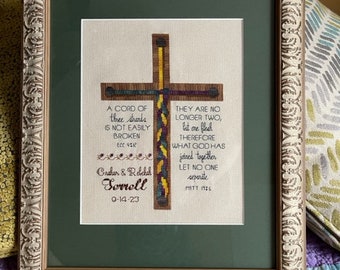 A CORD OF
three strands
IS NOT EASILY
BROKEN
ECC 4:12
& Rebekah
Ferrell
9-14-23
THEY ARE NO
LONGER TWO,
but one flesh
THEREFORE
WHAT GOD HAS
joined together
LET NO ONE
separate
MATT 19:6